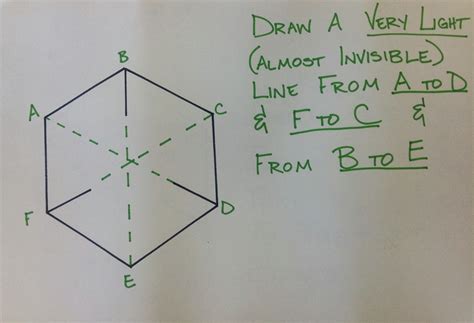 DRAW A VERY LIGHT
(ALMOST INVISIBLE)
LINE FROM A TO D
& F TO C &
FROM B TO E
B
A
C
F
D
E